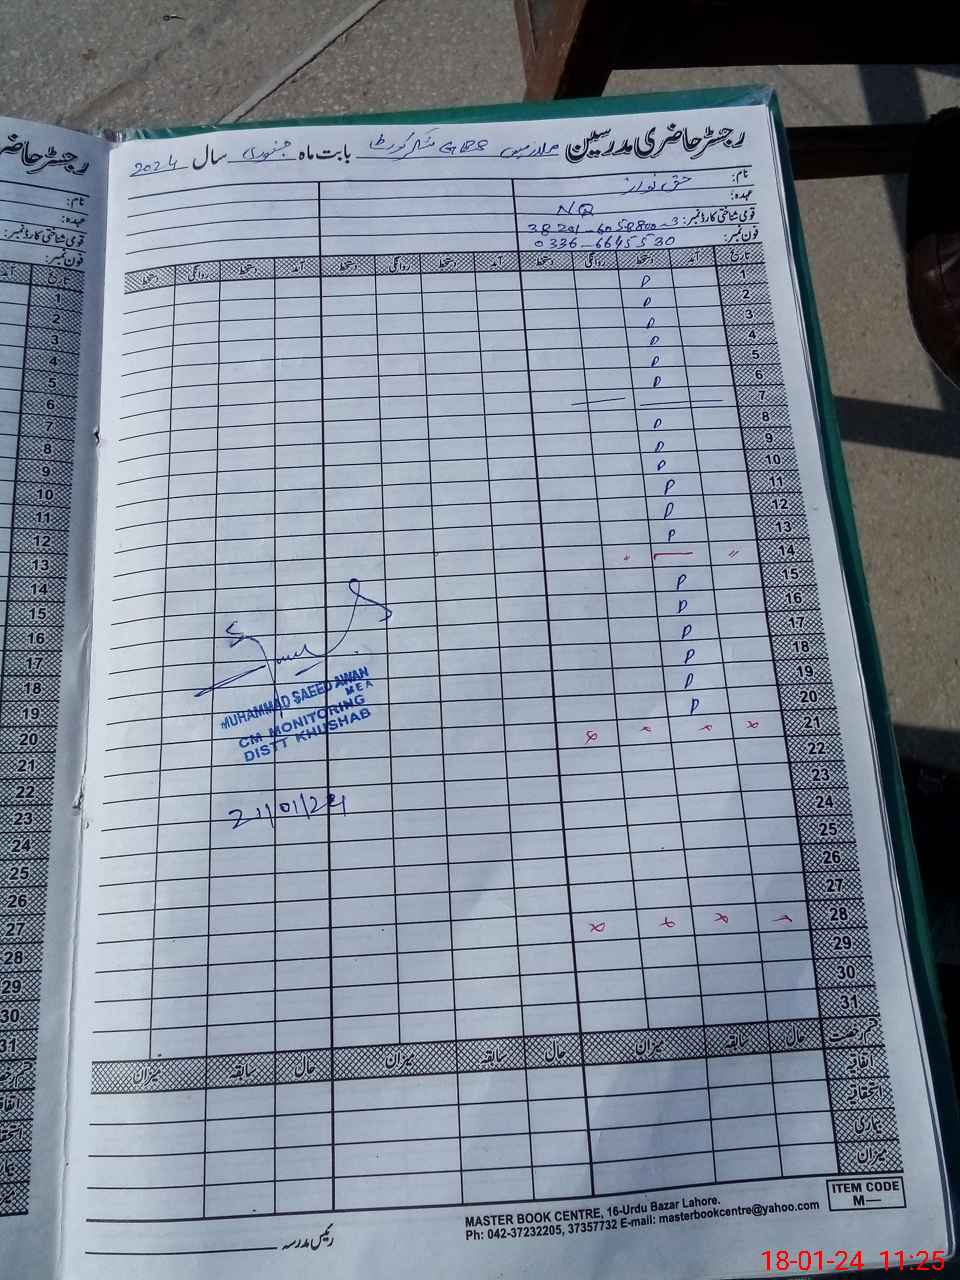 رجسٹر حاضری مدرسین مدرسہ GBS بابت ماہ جنوری سال 2024
نام: حق نواز
عہدہ: NQ
قومی شناختی کارڈ نمبر: 38201-6058800-3
فون نمبر: 0336-6645530
تاریخ آمد دستخط روانگی دستخط آمد دستخط روانگی دستخط آمد دستخط روانگی دستخط
1 P
2 P
3 P
4 P
5 P
6 P
7
8 P
9 P
10 P
11 P
12 P
13 P
14 "
15 P
16 P
17 P
18 P
19 P
20 P
21 x x x x
22
23
24
25
26
27
28 x x x x
29
30
31
MUHAMMAD SAEED AWAN
MEA
CM MONITORING
DISTT KHUSHAB
21/01/24
قسم رخصت حال سابقہ میزان حال سابقہ میزان حال سابقہ میزان
اتفاقیہ
استحقاقیہ
بیماری
میزان
رئیس مدرسہ
MASTER BOOK CENTRE, 16-Urdu Bazar Lahore.
Ph: 042-37232205, 37357732 E-mail: masterbookcentre@yahoo.com
ITEM CODE
M—
رجسٹر حاضری
نام:
عہدہ:
قومی شناختی کارڈ نمبر:
فون نمبر:
تاریخ آمد
1
2
3
4
5
6
7
8
9
10
11
12
13
14
15
16
17
18
19
20
21
22
23
24
25
26
27
28
29
30
31
18-01-24 11:25